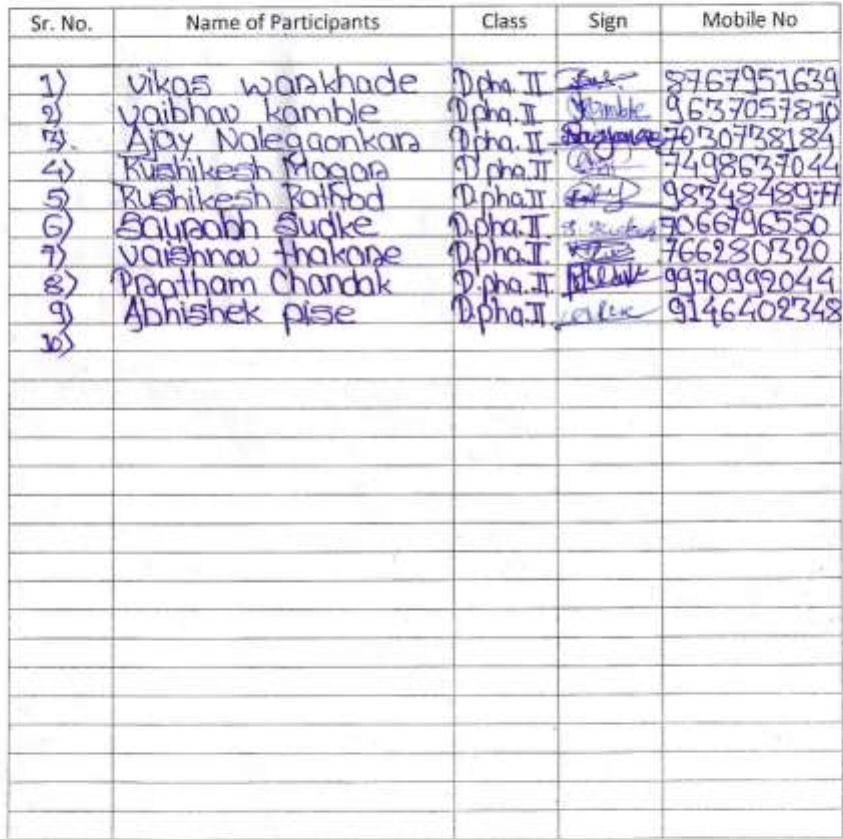 Sr. No. Name of Participants Class Sign Mobile No
1) Vikas Warkhade D.pha.II 8767951639
2) Vaibhav kamble D.pha.II Kamble 9637057810
3) Ajay Nalegaonkar D.pha.II 7030738184
4) Rushikesh Magar D.pha.II 7498637044
5) Rushikesh Rathod D.pha.II 9834848977
6) Saurabh Sudke D.pha.II 9066796550
7) Vaishnav thakare D.pha.II 766280320
8) Pratham Chandak D.pha.II 9970992044
9) Abhishek pise D.pha.II 9146402348
10)